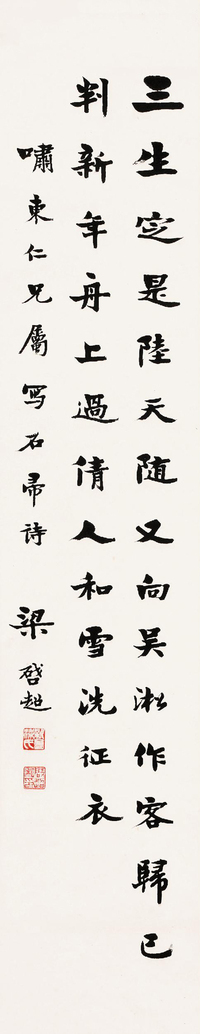 三生定是陸天随又向吴淞作客歸已
判新年舟上過倩人和雪洗征衣
嘯東仁兄屬写石帚诗 梁啓超